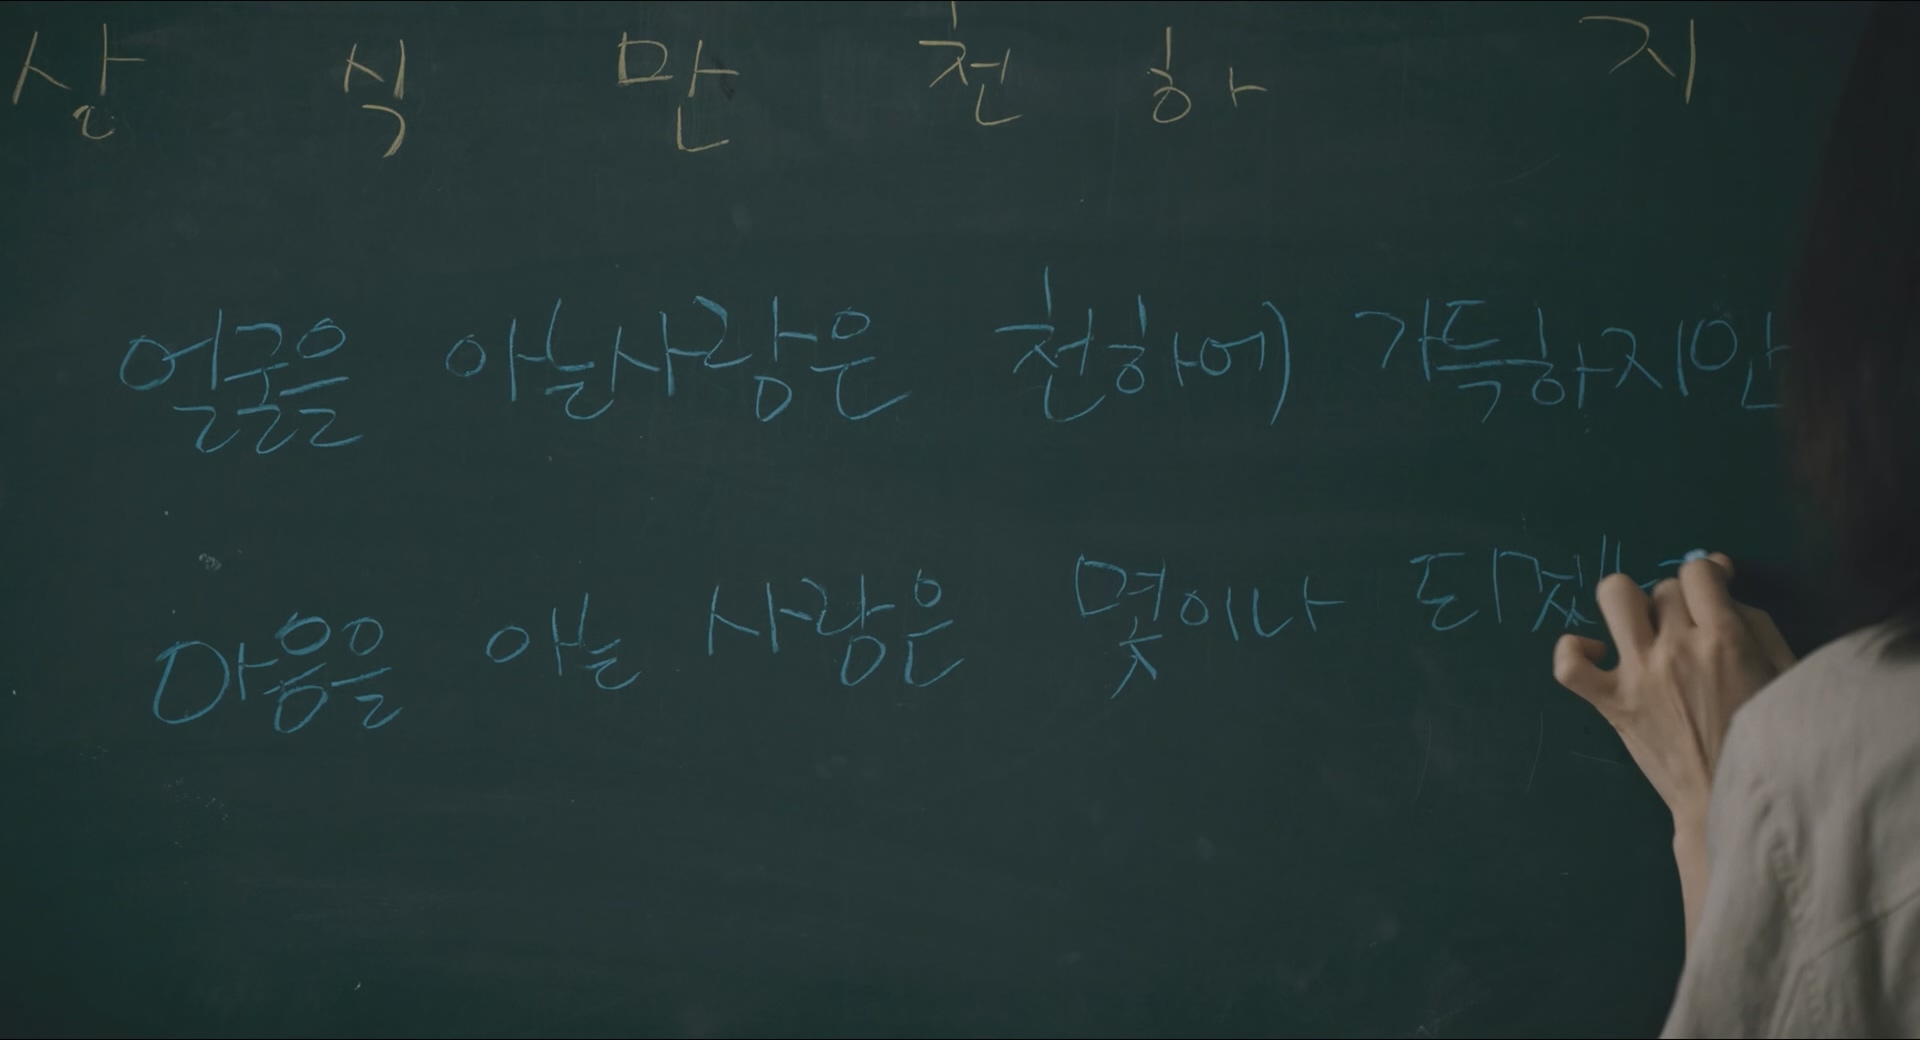 상 식 만 천 하 지
얼굴을 아는사람은 천하에 가득하지만
마음을 아는 사람은 몇이나 되겠는